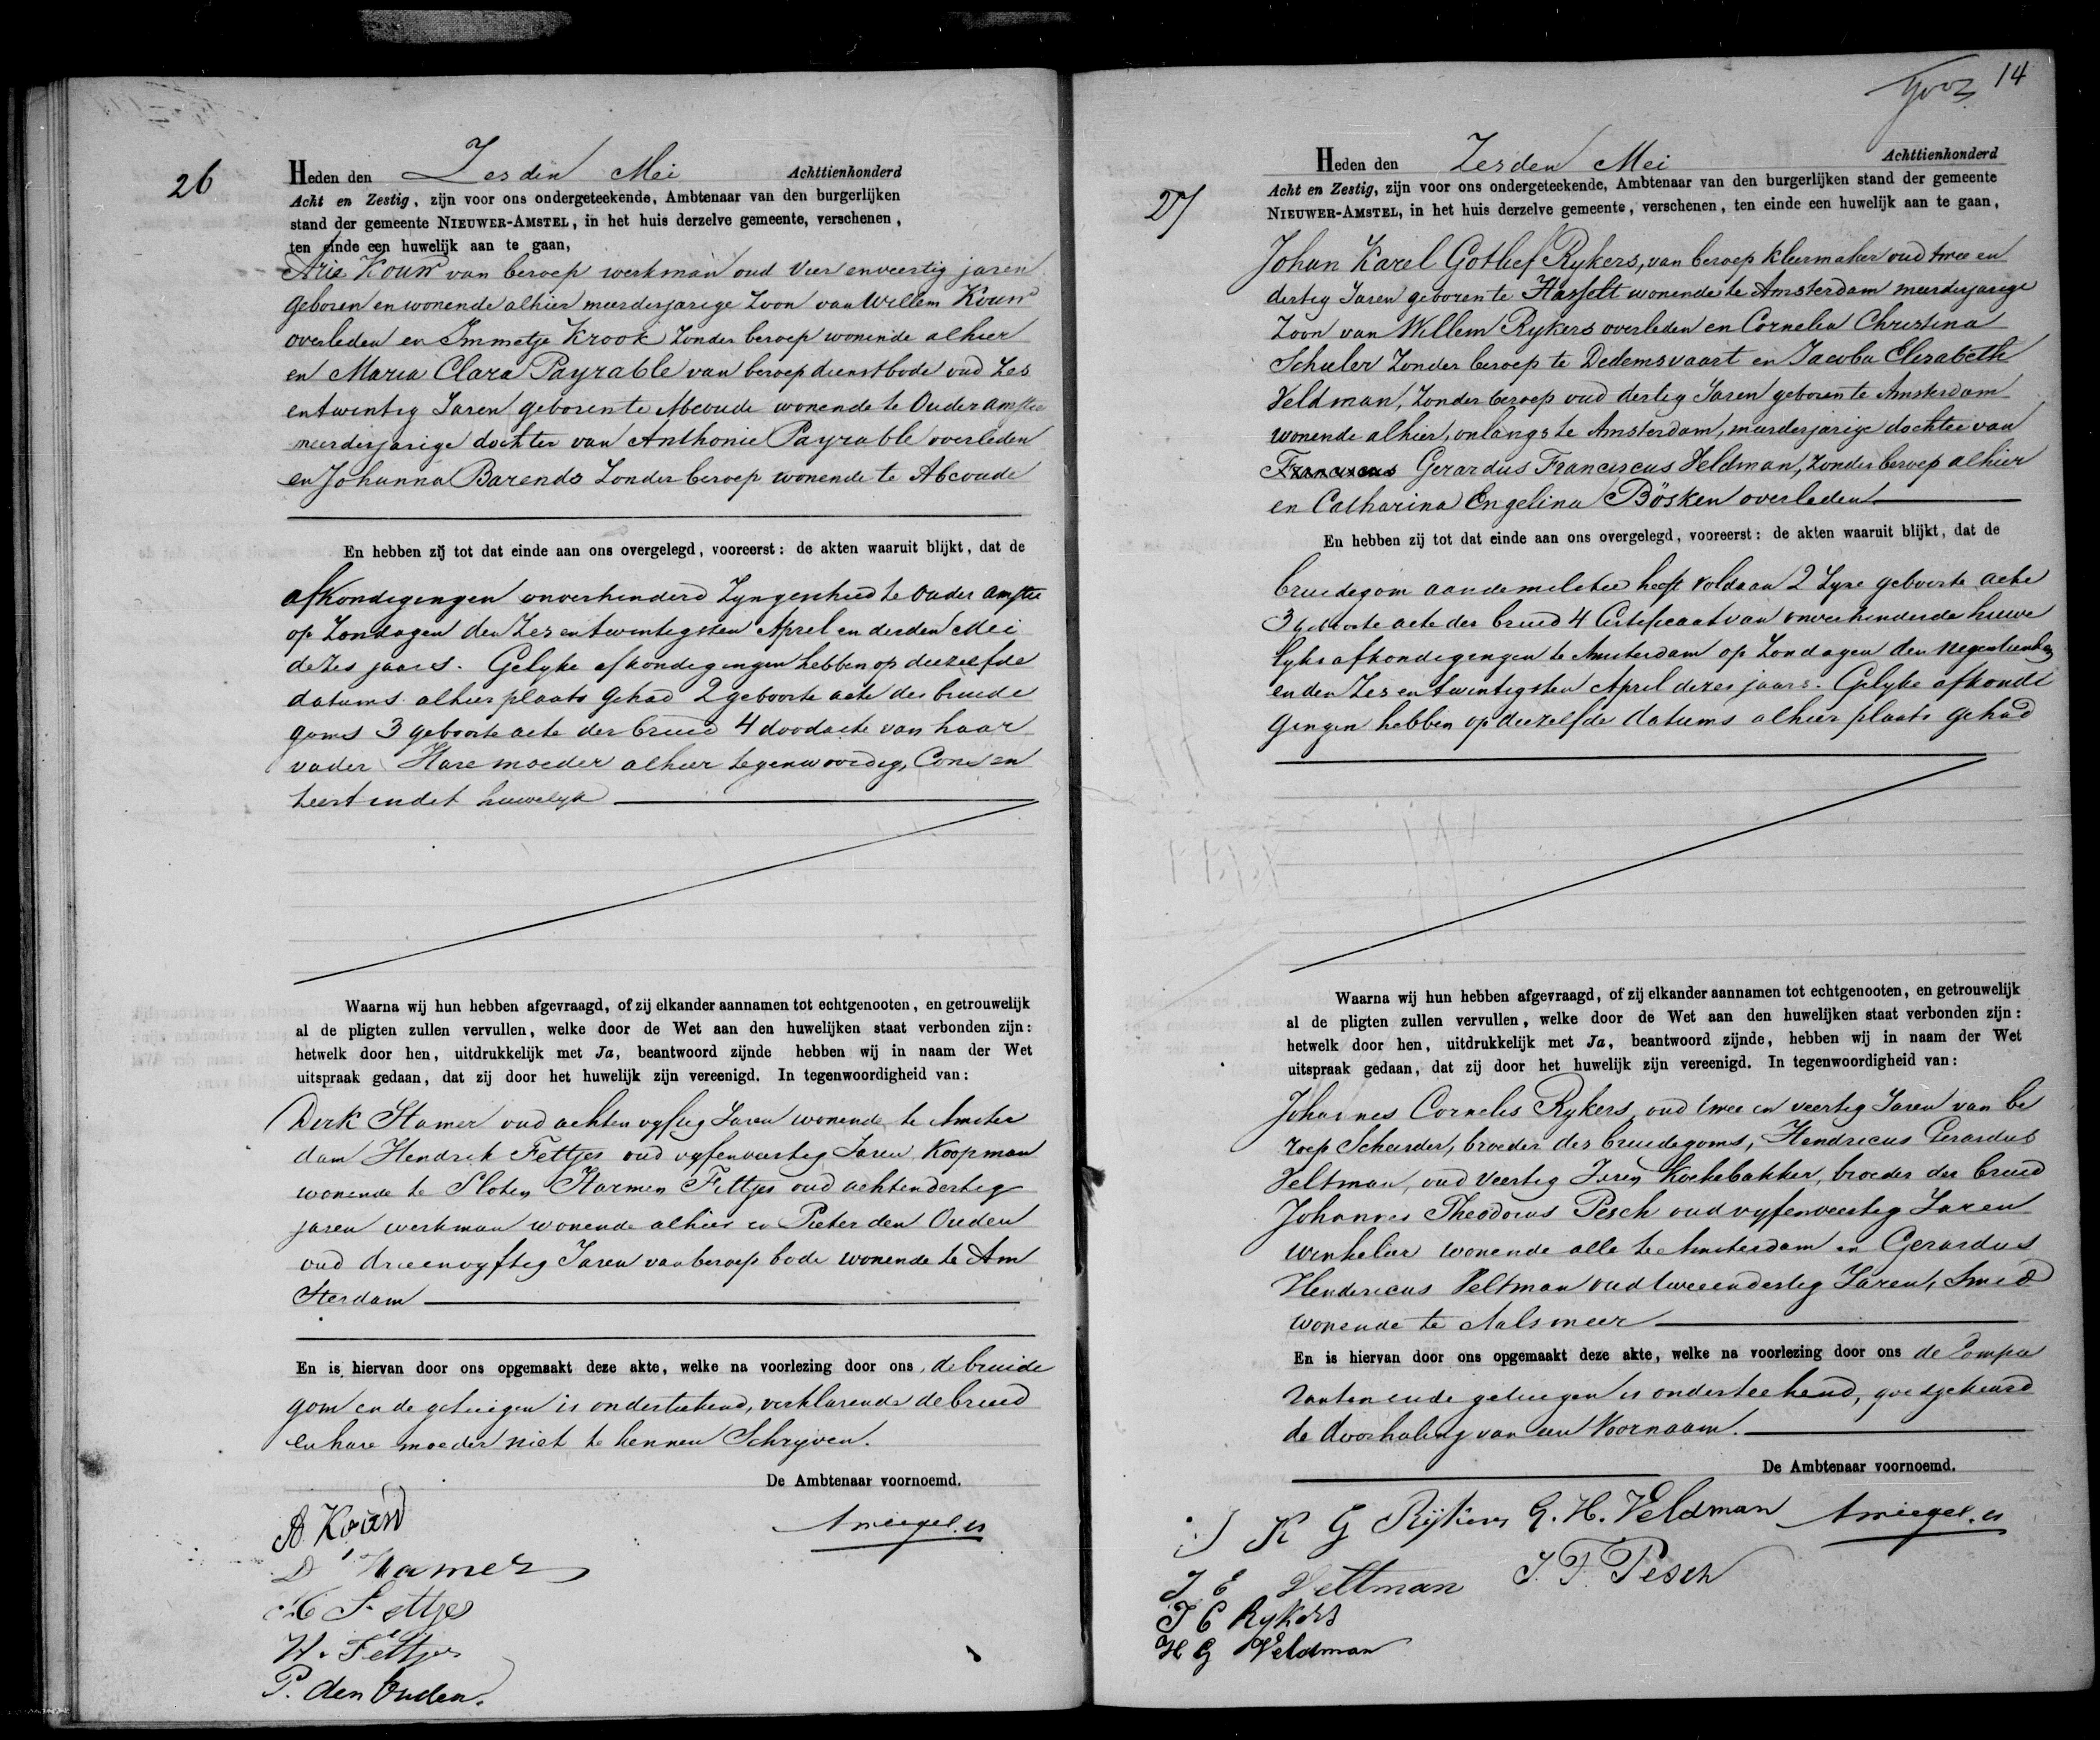 26
Heden den Zesden Mei Achttienhonderd
Acht en Zestig, zijn voor ons ondergeteekende, Ambtenaar van den burgerlijken
stand der gemeente NIEUWER-AMSTEL, in het huis derzelve gemeente, verschenen,
ten einde een huwelijk aan te gaan,
Arie Kouw van beroep werkman oud vier en veertig jaren
geboren en wonende alhier meerderjarige Zoon van Willem Kouw
overleden en Immetje Krook Zonder beroep wonende alhier
en Maria Clara Payrable van beroep dienstbode oud Zes
en twintig Jaren geboren te Abcoude wonende te Ouder amstel
meerderjarige dochter van Anthonie Payrable overleden
en Johanna Barends Zonder beroep wonende te Abcoude
En hebben zij tot dat einde aan ons overgelegd, vooreerst: de akten waaruit blijkt, dat de
afkondigingen onverhinderd Zyn geschied te Ouder amstel
op Zondagen den Zes en twintigsten April en derden Mei
dezes jaars. Gelyke afkondigingen hebben op diezelfde
datums alhier plaats gehad 2 geboorte acte des bruide
goms 3 geboorte acte der bruid 4 doodacte van haar
vader Hare moeder alhier tegenwoordig, Consen
teert in dit huwelyk
Waarna wij hun hebben afgevraagd, of zij elkander aannamen tot echtgenooten, en getrouwelijk
al de pligten zullen vervullen, welke door de Wet aan den huwelijken staat verbonden zijn:
hetwelk door hen, uitdrukkelijk met Ja, beantwoord zijnde hebben wij in naam der Wet
uitspraak gedaan, dat zij door het huwelijk zijn vereenigd. In tegenwoordigheid van:
Derk Hamer oud acht en vyftig Jaren wonende te Amster
dam Hendrik Fettjes oud vyfenveertig Jaren Koopman
wonende te Sloten Harmen Fettjes oud achtendertig
jaren werkman wonende alhier en Pieter den Ouden
oud drieenvyftig Jaren van beroep bode wonende te Am
sterdam
En is hiervan door ons opgemaakt deze akte, welke na voorlezing door ons, de bruide
gom en de getuigen is onderteekend, verklarende de bruid
en hare moeder niet te kennen Schryven.
De Ambtenaar voornoemd.
A Kouw
D Hamer
H Fettjes
H. Fettjes
P. den Ouden.
14
27
Heden den Zesden Mei Achttienhonderd
Acht en Zestig, zijn voor ons ondergeteekende, Ambtenaar van den burgerlijken stand der gemeente
NIEUWER-AMSTEL, in het huis derzelve gemeente, verschenen, ten einde een huwelijk aan te gaan,
Johan Karel Gotlief Rykers, van beroep kleermaker oud twee en
dertig Jaren geboren te Hasselt wonende te Amsterdam meerderjarige
Zoon van Willem Rykers overleden en Cornelia Christina
Schuler Zonder beroep te Dedemsvaart en Jacoba Elisabeth
Veldman, Zonder beroep oud dertig Jaren geboren te Amsterdam
wonende alhier, onlangs te Amsterdam, meerderjarige dochter van
Franciscus Gerardus Franciscus Veldman, Zonder beroep alhier
en Catharina Engelina Bösken overleden
En hebben zij tot dat einde aan ons overgelegd, vooreerst: de akten waaruit blijkt, dat de
bruidegom aan de militie heeft voldaan 2 Zyne geboorte acte
3 geboorte acte der bruid 4 Certificaat van onverhinderde huwe
lyks afkondigingen te Amsterdam op Zondagen den negentienden
en den Zes en twintigsten April dezes jaars. Gelyke afkondi
gingen hebben op diezelfde datums alhier plaats gehad
Waarna wij hun hebben afgevraagd, of zij elkander aannamen tot echtgenooten, en getrouwelijk
al de pligten zullen vervullen, welke door de Wet aan den huwelijken staat verbonden zijn:
hetwelk door hen, uitdrukkelijk met Ja, beantwoord zijnde, hebben wij in naam der Wet
uitspraak gedaan, dat zij door het huwelijk zijn vereenigd. In tegenwoordigheid van:
Johannes Cornelis Rykers, oud twee en veertig Jaren van be
roep Scheerder, broeder des bruidegoms, Hendricus Gerardus
Veltman, oud veertig Jaren Koekebakker, broeder der bruid
Johannes Theodorus Pesch oud vyfenveertig Jaren
winkelier wonende alle te Amsterdam en Gerardus
Hendericus Veltman oud tweeendertig Jaren, Smid
wonende te Aalsmeer
En is hiervan door ons opgemaakt deze akte, welke na voorlezing door ons de Compa
ranten en de getuigen is onderteekend, goedgekeurd
de doorhaling van een Voornaam.
De Ambtenaar voornoemd.
J K G Rijkers G. H. Veldman
J E Veltman J. T. Pesch
J C Rykers
H G Veldman